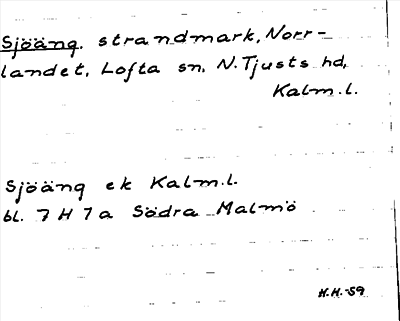 Sjöäng, strandmark, Norr-
landet, Lofta sn, N. Tjusts hd,
Kalm.l.
Sjöäng ek Kalm.l.
bl. 7 H 7 a Södra Malmö
H.H.-59